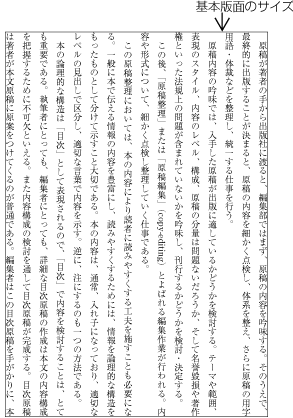 基本版面のサイズ
原稿が著者の手から出版社に渡ると、編集部ではまず、原稿の内容を吟味する。そのうえで
最終的に出版することが決まると、原稿の内容を細かく点検し、体裁を整え、さらに原稿の用字
用語・体裁などを整理し、統一する仕事を行う。
原稿内容の吟味では、入手した原稿が出版に適しているかどうかを検討する。テーマや範囲、
表現のスタイル、内容のレベル、構成、原稿の分量は問題ないだろうか、そして名誉毀損や著作
権といった法規上の問題が含まれていないかを吟味し、刊行するかどうかを検討・決定する。
この後、「原稿整理」または「原稿編集」(copy-editing)とよばれる編集作業が行われる。内
容や形式について、細かく点検、整理していく仕事である。
この原稿整理においては、本の内容により読者に読みやすくする工夫を施すことも必要にな
る。一般に本で伝える情報の内容を豊富にし、読みやすくするためには、情報を論理的な構造を
もったものとして分けて示すこと大切である。本の内容は、通常、入れ子になっており、適切な
レベルの見出しで区分し、適切な言葉で内容を示す、逆に、注にするのも一つの方法である。
本の論理的な構造は「目次」として表現されるので、「目次」で内容を検討することは、とて
も重要である。執筆者にとっても、編集者にとっても、詳細な目次原稿の作成は本文の内容構成
を把握するために不可欠といえる。また内容構成の検討を通して目次原稿が完成する。目次原稿
は著者が本文原稿に原案をつけてくるのが普通である。編集者はこの目次原稿を手がかりに、本